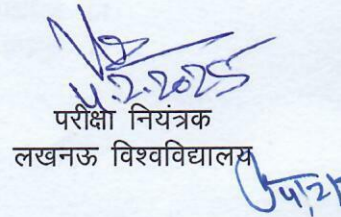 4.2.2025
परीक्षा नियंत्रक
लखनऊ विश्वविद्यालय
4/2/